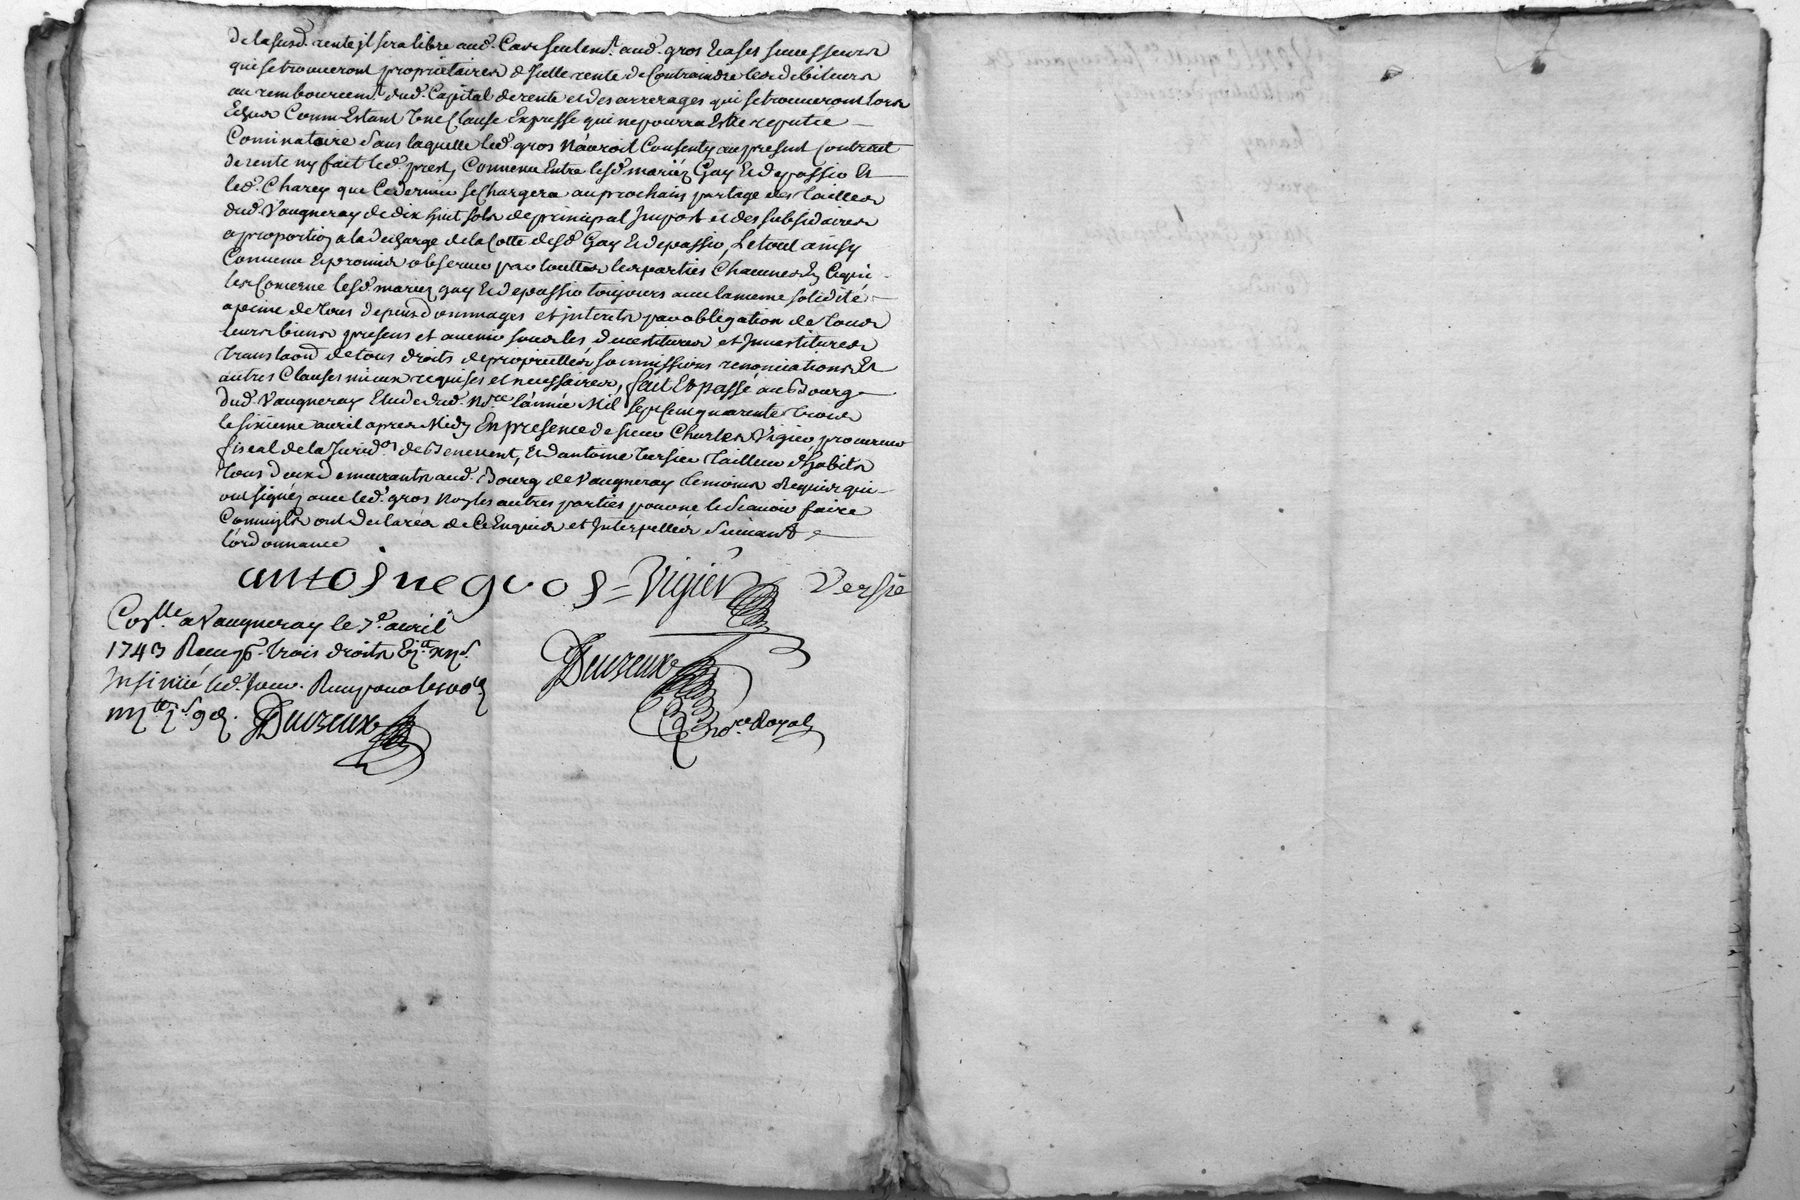 de la susd. rente il sera libre aud. Cas seulem.t aud. gros et a ses successeurs
qui se trouveront proprietaires d'Icelle rente de Contraindre les debiteurs
au remboursem.t dud. Capital de rente et des arrerages qui se trouveront lors
Echus Comm Estant Une Clause Expresse qui ne pourra Estre reputée
Cominatoire Sans laquelle led. gros N'auroit Consenty au present Contract
de rente ny fait led. prest, Convenu Entre lesd. mariez Gay Et depassio Et
led. Charey que Ce dernier se Chargera au prochain partage des Tailles
dud. Vaugneray de dix huit sols de principal Impost et des subsidaires
a proportion a la decharge de la Cotte desd. Gay Et depassio, Le tout ainsy
Convenu Et promis observer par touttes les parties Chacunes En Ce qui
les Concerne lesd. mariez gay Et depassio toujours avec la meme solidité
a peine de tous depens dommages et interets par obligation de tous
leurs biens presens et avenir sous les devestitures et Investitures
translaon de tous droits de proprietés soumissions renonciations Et
autres Clauses mieux requises et necessaires, fait Et passé au Bourg
dud. Vaugneray Etude dud. No.re l'année Mil sept cent quarente trois
le sixieme avril apres Midy En presence de sieur Charles Vigier procureur
fiscal de la Jurid.on de Benevent, Et d'antoine Versier Tailleur d'habits
tous deux demeurants aud. Bourg de Vaugneray temoins Requis qui
ont signéz avec led. gros Non les autres parties pour ne le Scavoir faire
Comm'ils ont declarés de Ce Enquis et Interpellés Suivant
l'ordonnance
antoine gros Vigier Versie
Co.lle a Vaugneray le 7.e avril
1743 Reçu p.r trois droits
Insinué led. Jour. Reçu pour les
Deureux
Deureux
no.re Royal